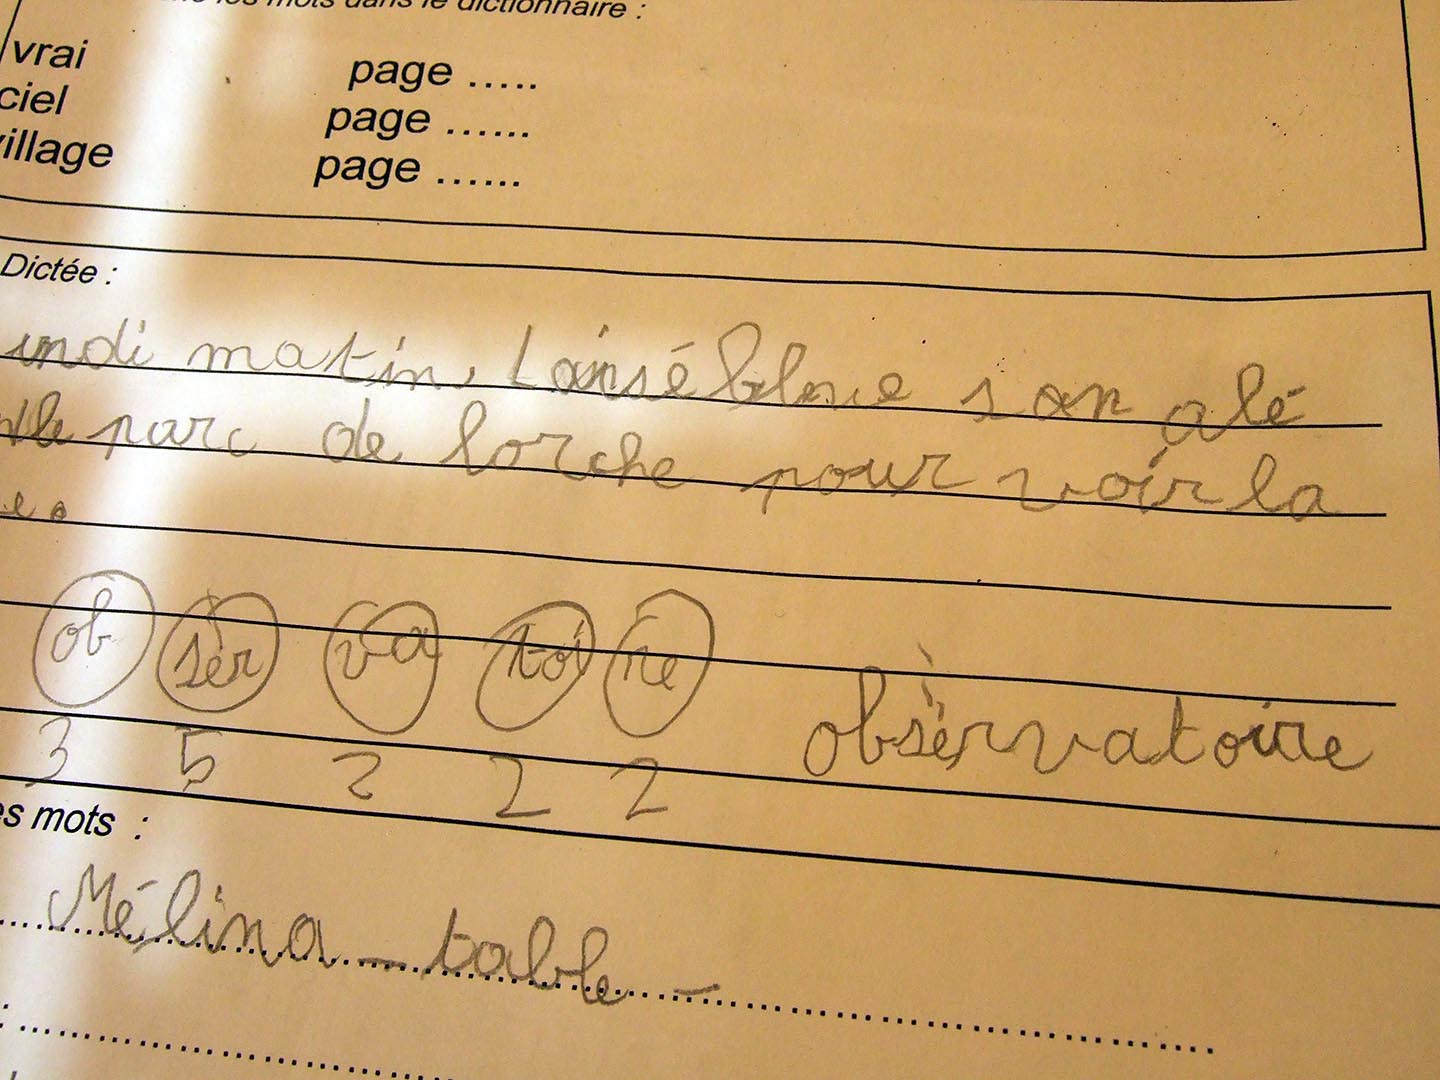 les mots dans le dictionnaire :
vrai page .....
ciel page ......
village page ......
Dictée :
undi matin, son alé
le parc de lorche pour voir la
ob sèr va toi re obsèrvatoire
3 5 2 2 2
es mots :
Mélina - table -